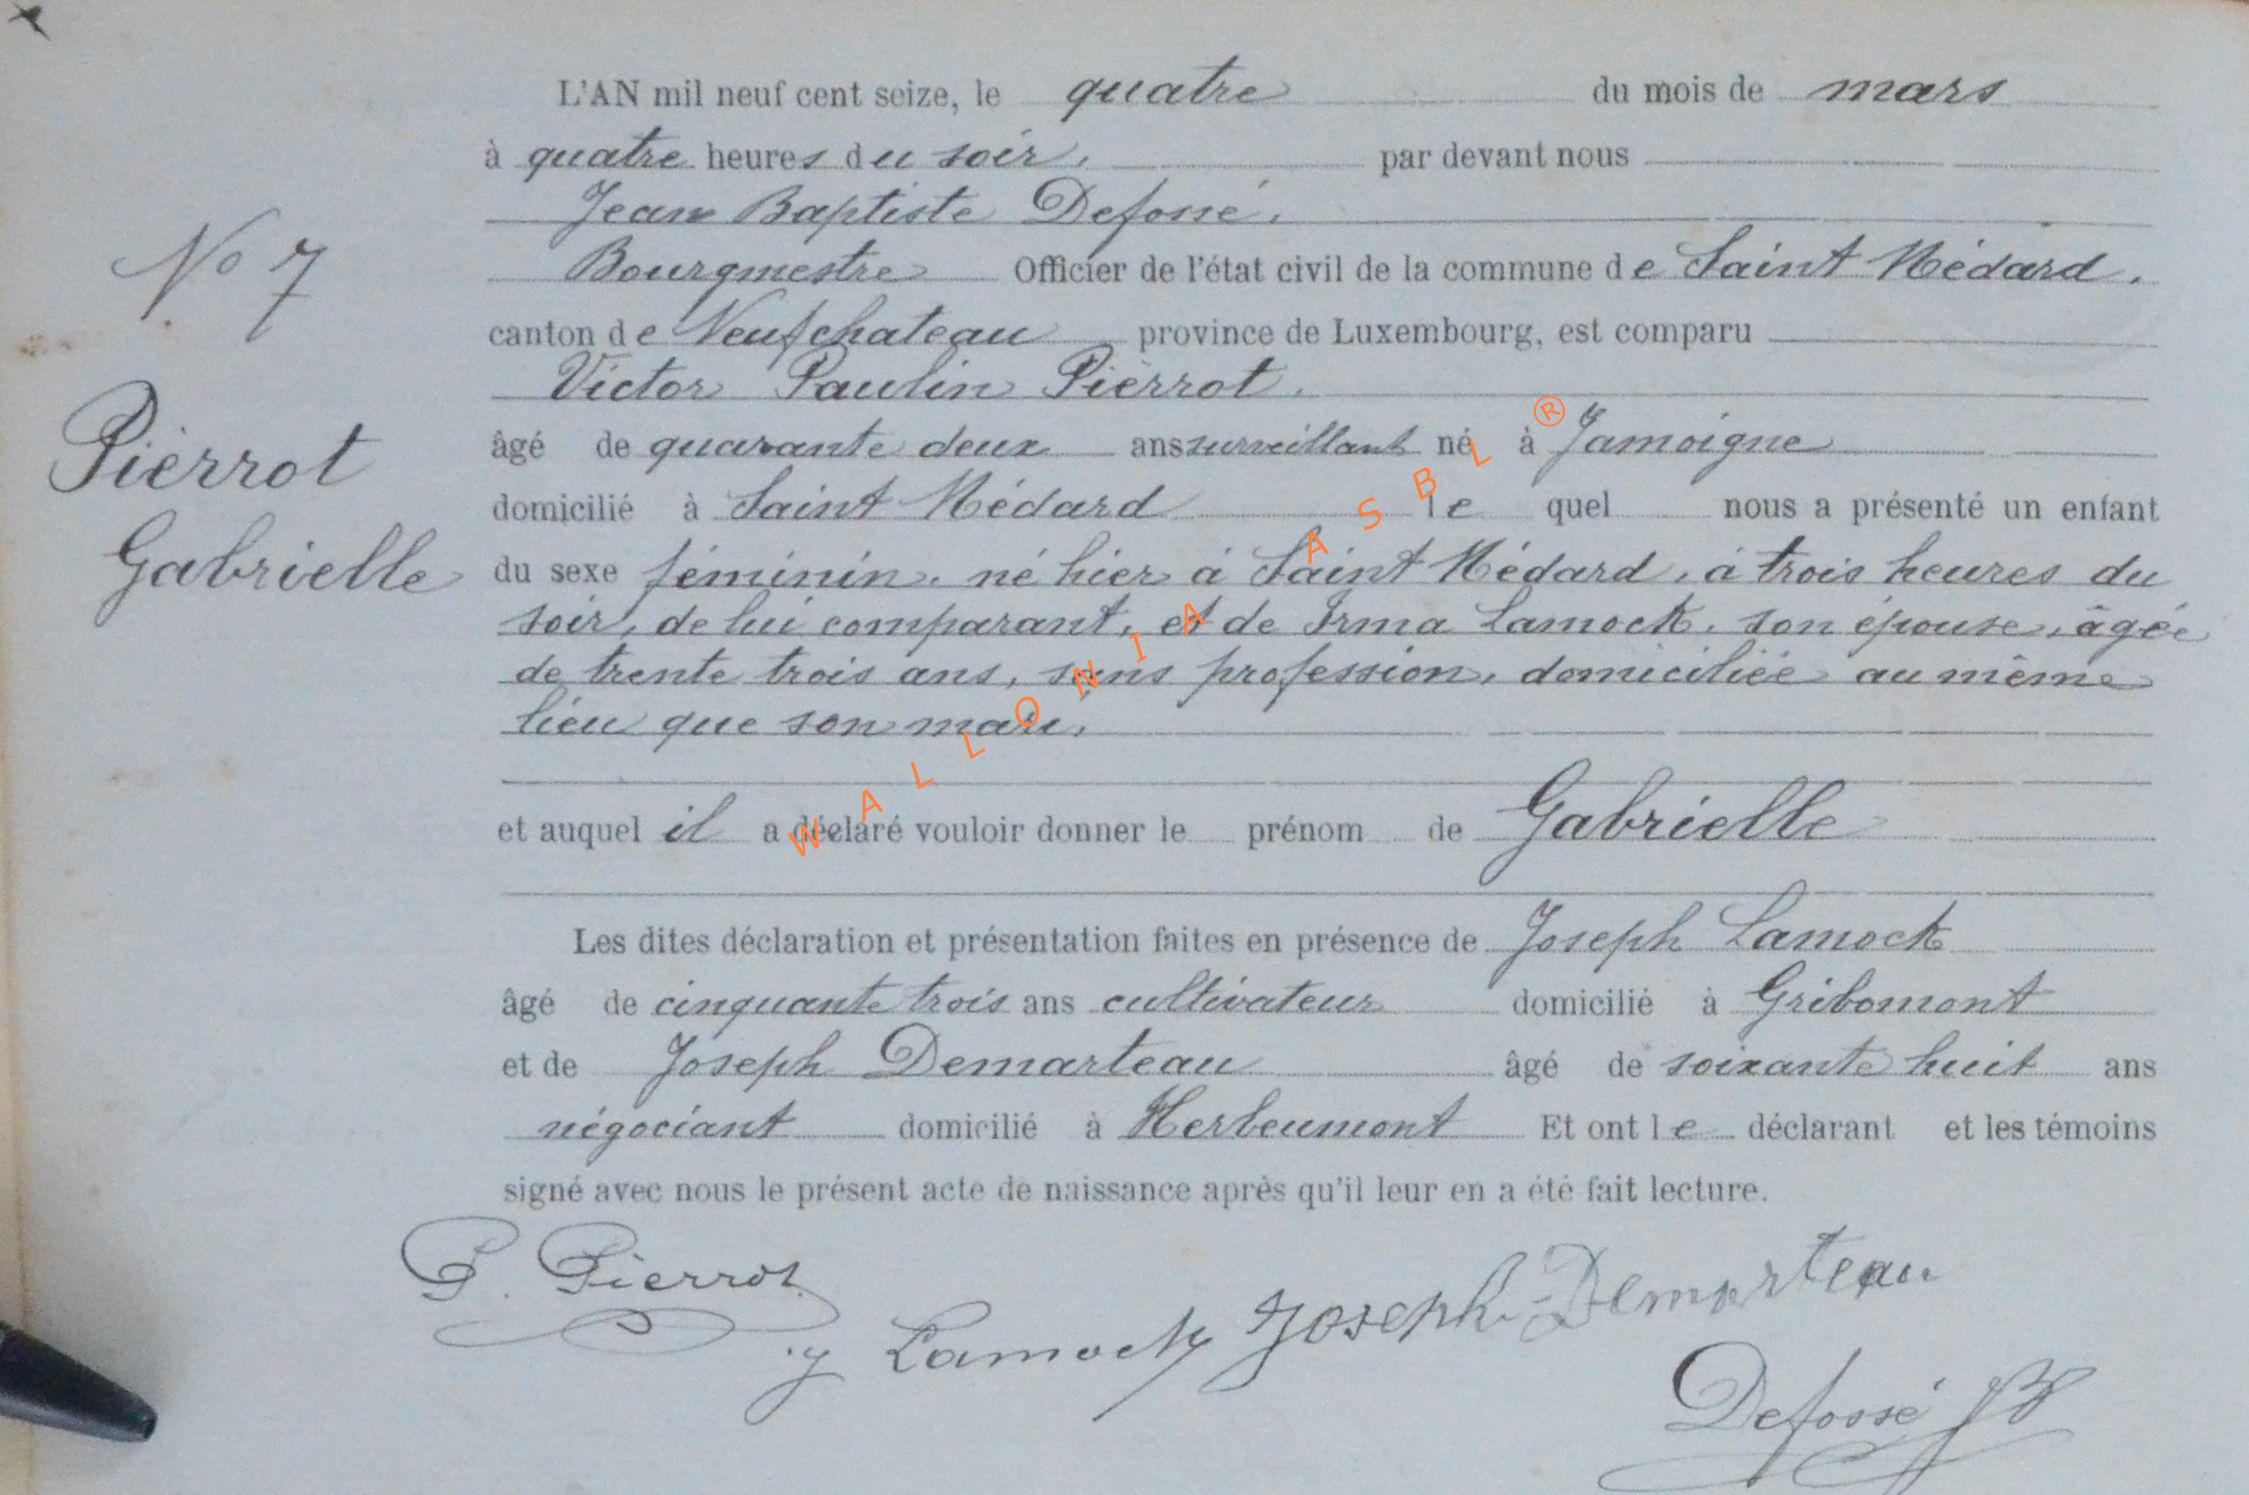 L'AN mil neuf cent seize, le quatre du mois de mars
à quatre heures du soir, par devant nous
Jean Baptiste Defossé,
Bourgmestre Officier de l'état civil de la commune de Saint Médard,
No 7
canton de Neufchateau province de Luxembourg, est comparu
Victor Paulin Pierrot,
âgé de quarante deux ans surveillant né à Jamoigne
Pierrot
domicilié à Saint Médard le quel nous a présenté un enfant
Gabrielle
du sexe féminin, né hier à Saint Médard, à trois heures du
soir, de lui comparant, et de Irma Lamock, son épouse, âgée
de trente trois ans, sans profession, domiciliée au même
lieu que son mari.
et auquel il a déclaré vouloir donner le prénom de Gabrielle
Les dites déclaration et présentation faites en présence de Joseph Lamock
âgé de cinquante trois ans cultivateur domicilié à Gribomont
et de Joseph Demarteau âgé de soixante huit ans
négociant domicilié à Herbeumont Et ont le déclarant et les témoins
signé avec nous le présent acte de naissance après qu'il leur en a été fait lecture.
P. Pierrot
J Lamock Joseph Demarteau
Defossé JB
WALLONIA ASBL ®